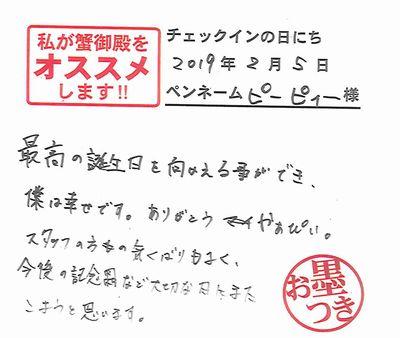 私が蟹御殿を
オススメ
します!!
チェックインの日にち
2019年2月5日
ペンネームピーピィー様
最高の誕生日を向かえる事ができ、
僕は幸せです。ありがとう やぁぴぃ。
スタッフの方々の気くばりもよく、
今後の記念日など大切な日にまた
こようと思います。
お墨つき